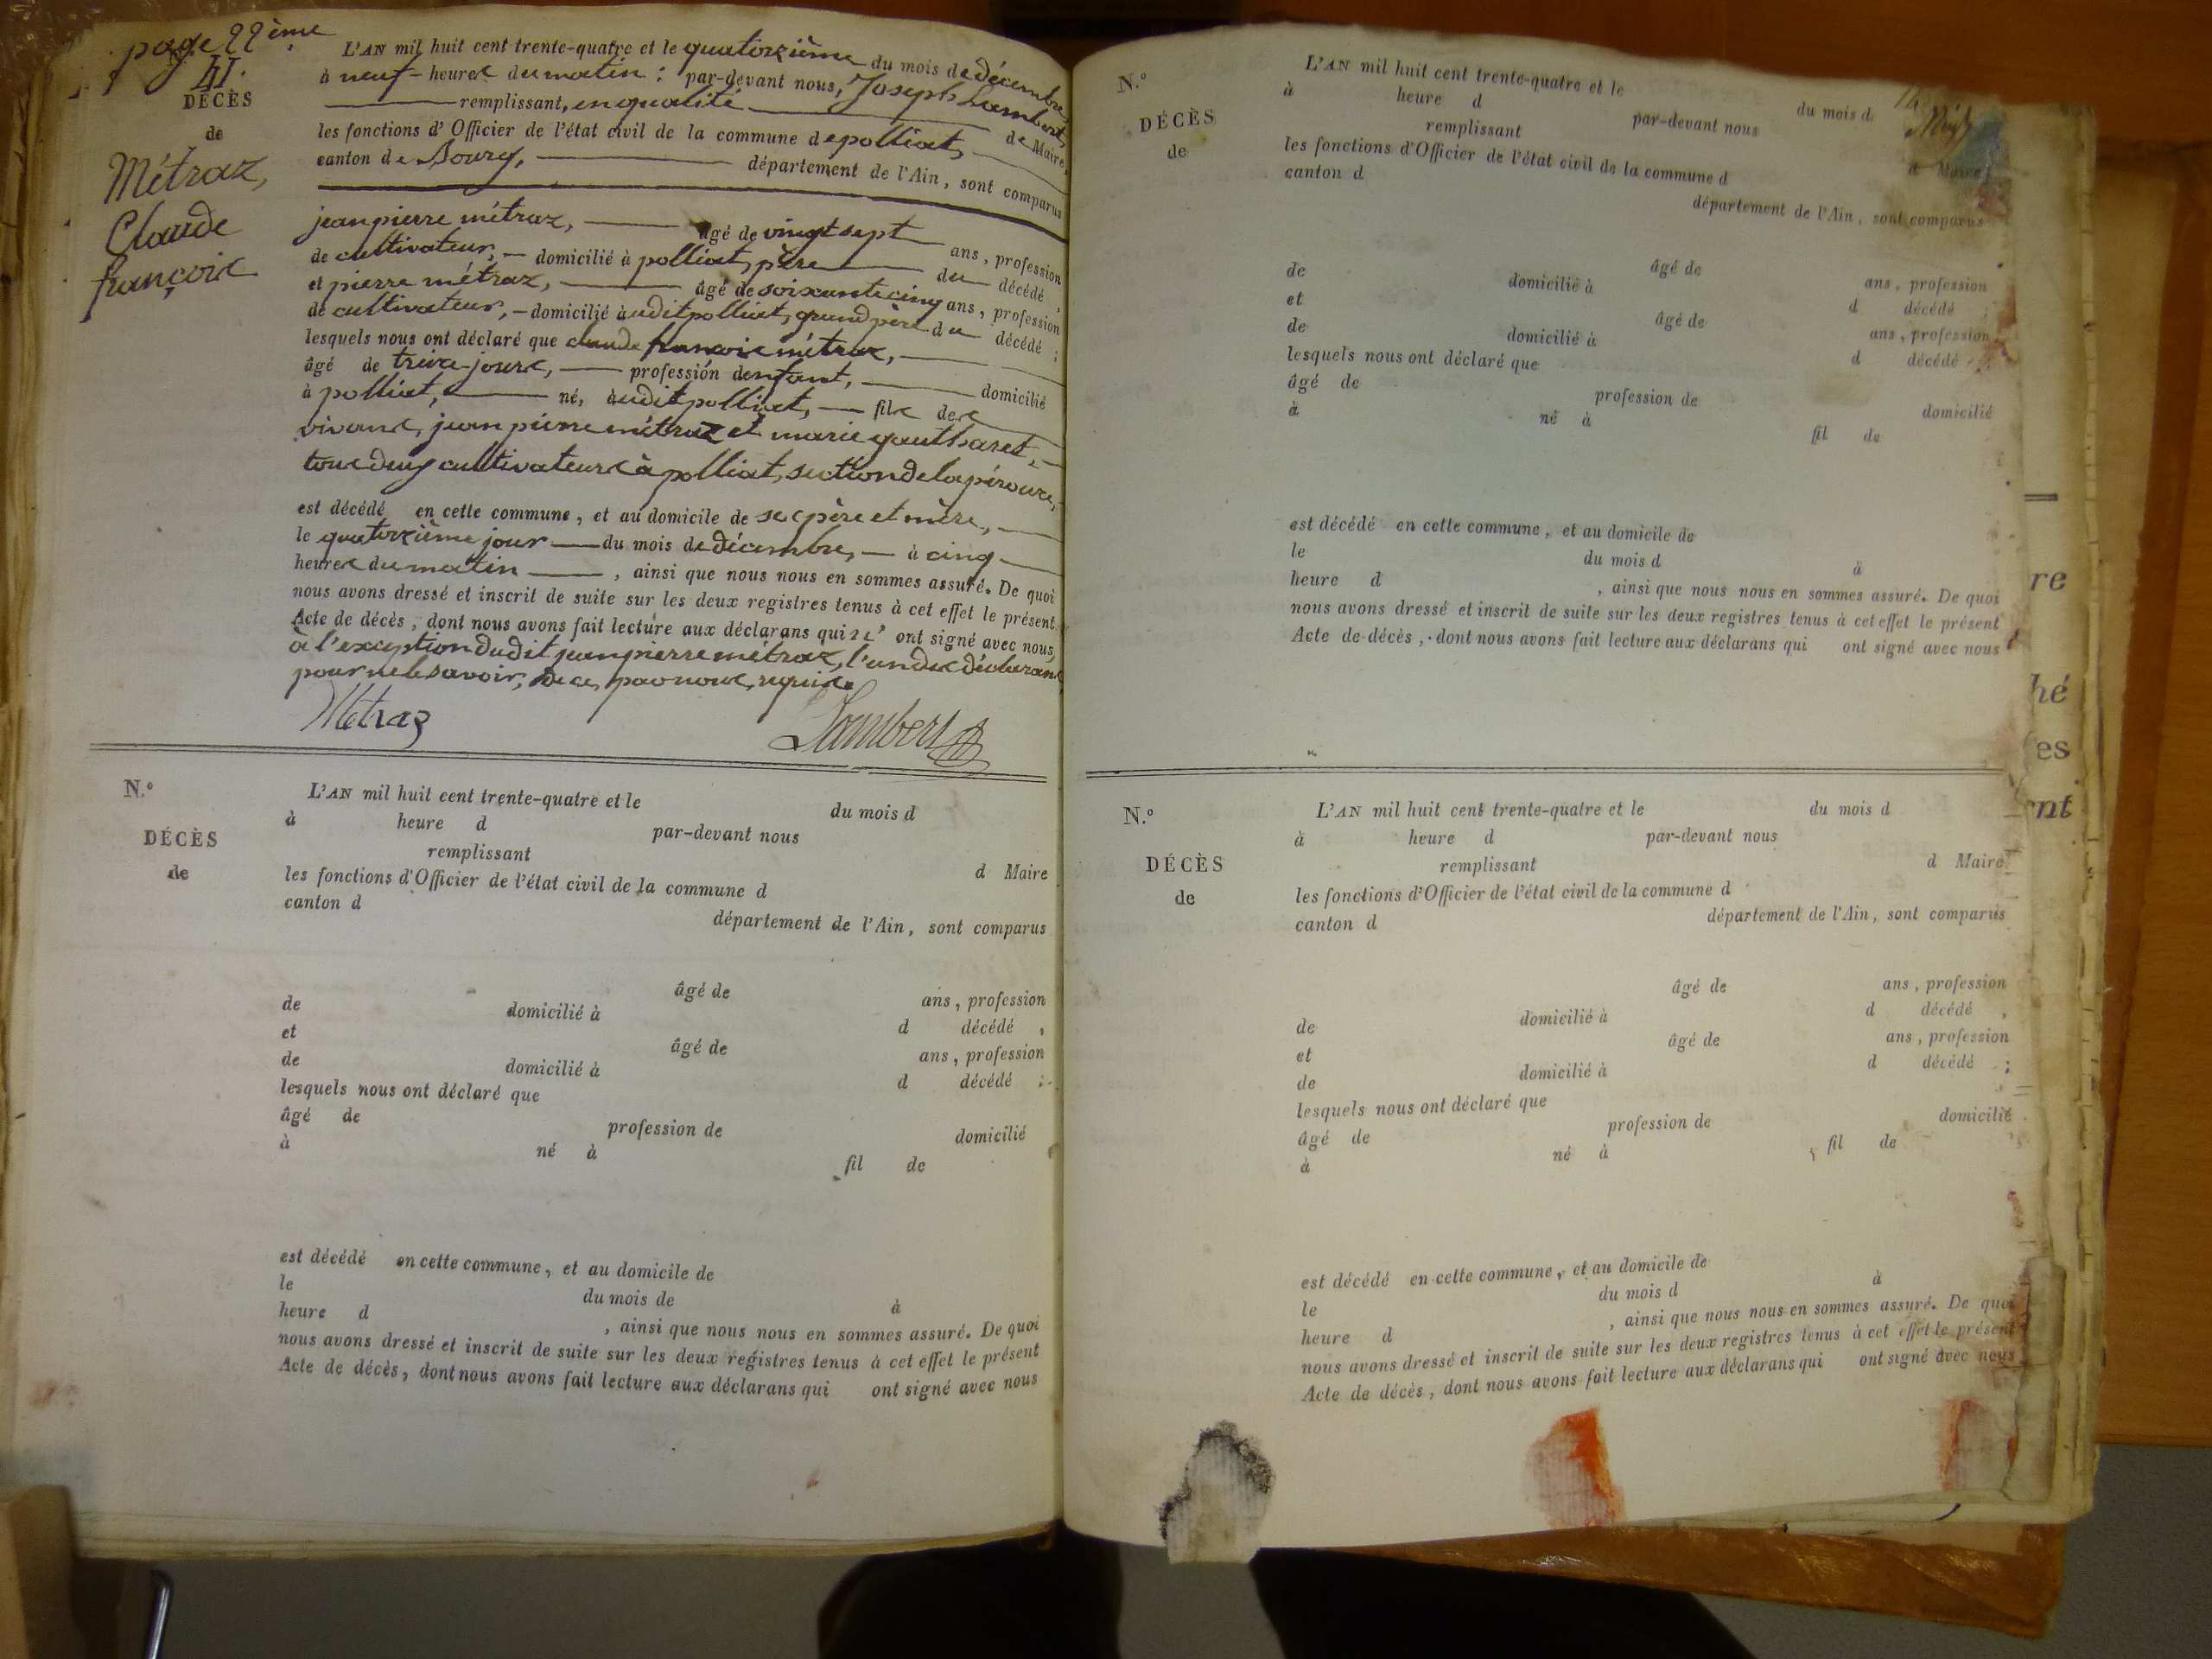 page 22ème
41.
DÉCÈS
de
Métraz,
Claude
françois
L'AN mil huit cent trente-quatre et le quatorzième du mois de décembre,
à neuf heures du matin : par-devant nous, Joseph Lambert,
remplissant, en qualité de Maire,
les fonctions d'Officier de l'état civil de la commune de polliat,
canton de Bourg, département de l'Ain, sont comparus
jean pierre métraz, âgé de vingt sept ans, profession
de cultivateur, domicilié à polliat, père du décédé,
et pierre métraz, âgé de soixante cinq ans, profession
de cultivateur, domicilié à udit polliat, grand père du décédé ;
lesquels nous ont déclaré que claude françois métraz,
âgé de treize jours, profession denfant, domicilié
à polliat, né, àudit polliat, fils des
vivans, jean pierre métraz et marie gautharet,
tous deux cultivateurs à polliat, section de lapérouze,
est décédé en cette commune, et au domicile de ses père et mère,
le quatorzième jour du mois de décembre, à cinq
heures du matin, ainsi que nous nous en sommes assuré. De quoi
nous avons dressé et inscrit de suite sur les deux registres tenus à cet effet le présent
Acte de décès, dont nous avons fait lecture aux déclarans qui ont signé avec nous,
à l'exception dudit jean pierre métraz, l'un des déclarans
pour ne le savoir, de ce, par nous, requis.
Métraz Lambert
N.º
DÉCÈS
de
L'AN mil huit cent trente-quatre et le du mois d
à heure d par-devant nous
remplissant d Maire
les fonctions d'Officier de l'état civil de la commune d
canton d département de l'Ain, sont comparus
âgé de ans, profession
de domicilié à d décédé,
et âgé de ans, profession
de domicilié à d décédé ;
lesquels nous ont déclaré que
âgé de profession de domicilié
à né à fil de
est décédé en cette commune, et au domicile de
le du mois de à
heure d , ainsi que nous nous en sommes assuré. De quoi
nous avons dressé et inscrit de suite sur les deux registres tenus à cet effet le présent
Acte de décès, dont nous avons fait lecture aux déclarans qui ont signé avec nous
N.º
DÉCÈS
de
L'AN mil huit cent trente-quatre et le du mois d
à heure d par-devant nous
remplissant d Maire
les fonctions d'Officier de l'état civil de la commune d
canton d département de l'Ain, sont comparus
âgé de ans, profession
de domicilié à d décédé ;
et âgé de ans, profession
de domicilié à d décédé
lesquels nous ont déclaré que
âgé de profession de domicilié
à né à fil de
est décédé en cette commune, et au domicile de
le du mois d à
heure d , ainsi que nous nous en sommes assuré. De quoi
nous avons dressé et inscrit de suite sur les deux registres tenus à cet effet le présent
Acte de décès, dont nous avons fait lecture aux déclarans qui ont signé avec nous
N.º
DÉCÈS
de
L'AN mil huit cent trente-quatre et le du mois d
à heure d par-devant nous
remplissant d Maire
les fonctions d'Officier de l'état civil de la commune d
canton d département de l'Ain, sont comparus
âgé de ans, profession
de domicilié à d décédé,
et âgé de ans, profession
de domicilié à d décédé ;
lesquels nous ont déclaré que
âgé de profession de domicilié
à né à fil de
est décédé en cette commune, et au domicile de
le du mois d à
heure d , ainsi que nous nous en sommes assuré. De quoi
nous avons dressé et inscrit de suite sur les deux registres tenus à cet effet le présent
Acte de décès, dont nous avons fait lecture aux déclarans qui ont signé avec nous
re
hé
es
nt